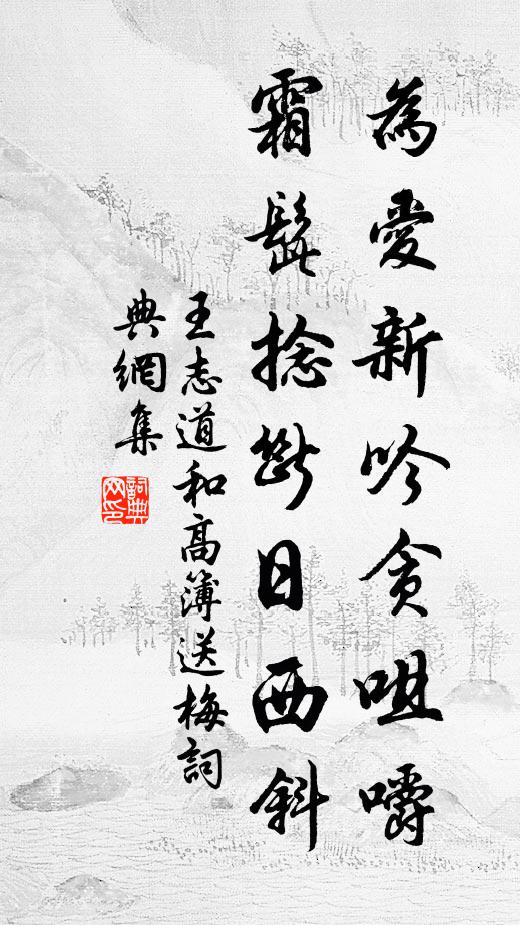 為愛新吟貪咀嚼
霜髭捻斷日西斜
王志道和高簿送梅詞
典網集
詞典網印